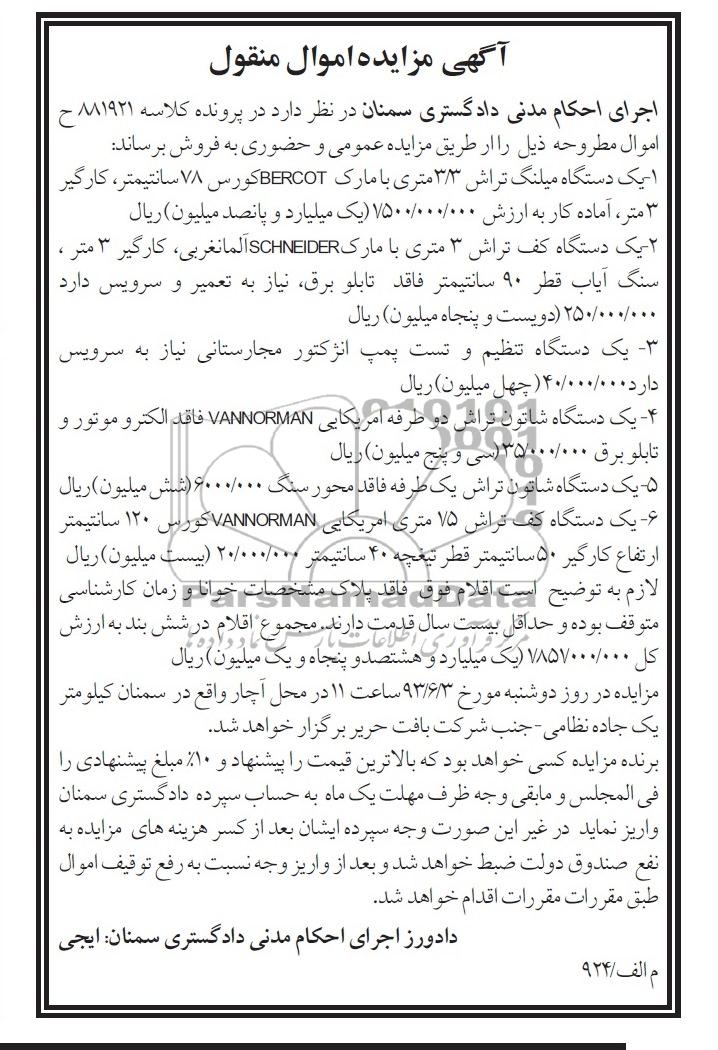 آگهی مزایده اموال منقول
اجرای احکام مدنی دادگستری سمنان در نظر دارد در پرونده کلاسه ۸۸۱۹۲۱ ح
اموال مطروحه ذیل را از طریق مزایده عمومی و حضوری به فروش برساند:
۱-یک دستگاه میلنگ تراش ۳/۳ متری با مارک BERCOT کورس ۷۸ سانتیمتر، کارگیر
۳ متر، آماده کار به ارزش ۱/۵۰۰/۰۰۰/۰۰۰ (یک میلیارد و پانصد میلیون) ریال
۲-یک دستگاه کف تراش ۳ متری با مارک SCHNEIDER آلمانغربی، کارگیر ۳ متر ،
سنگ آیاب قطر ۹۰ سانتیمتر فاقد تابلو برق، نیاز به تعمیر و سرویس دارد
۲۵۰/۰۰۰/۰۰۰ (دویست و پنجاه میلیون) ریال
۳- یک دستگاه تنظیم و تست پمپ انژکتور مجارستانی نیاز به سرویس
دارد ۴۰/۰۰۰/۰۰۰ (چهل میلیون) ریال
۴- یک دستگاه شاتون تراش دو طرفه امریکایی VANNORMAN فاقد الکترو موتور و
تابلو برق ۳۵/۰۰۰/۰۰۰ (سی و پنج میلیون) ریال
۵-یک دستگاه شاتون تراش یک طرفه فاقد محور سنگ ۶۰۰۰/۰۰۰ (شش میلیون) ریال
۶- یک دستگاه کف تراش ۱/۵ متری امریکایی VANNORMAN کورس ۱۲۰ سانتیمتر
ارتفاع کارگیر ۵۰ سانتیمتر قطر تیغچه ۴۰ سانتیمتر ۲۰/۰۰۰/۰۰۰ (بیست میلیون) ریال
لازم به توضیح است اقلام فوق فاقد پلاک مشخصات خوانا و زمان کارشناسی
متوقف بوده و حداقل بیست سال قدمت دارند. مجموع اقلام در شش بند به ارزش
کل ۱/۸۵۱/۰۰۰/۰۰۰ (یک میلیارد و هشتصدو پنجاه و یک میلیون) ریال
مزایده در روز دوشنبه مورخ ۹۳/۶/۳ ساعت ۱۱ در محل آچار واقع در سمنان کیلومتر
یک جاده نظامی-جنب شرکت بافت حریر برگزار خواهد شد.
برنده مزایده کسی خواهد بود که بالاترین قیمت را پیشنهاد و ۱۰٪ مبلغ پیشنهادی را
فی المجلس و مابقی وجه ظرف مهلت یک ماه به حساب سپرده دادگستری سمنان
واریز نماید در غیر این صورت وجه سپرده ایشان بعد از کسر هزینه های مزایده به
نفع صندوق دولت ضبط خواهد شد و بعد از واریز وجه نسبت به رفع توقیف اموال
طبق مقررات مقررات اقدام خواهد شد.
دادورز اجرای احکام مدنی دادگستری سمنان: ایجی
م الف/۹۲۴
ParsNamadData
مرکز فرآوری اطلاعات پارس نماد داده ها